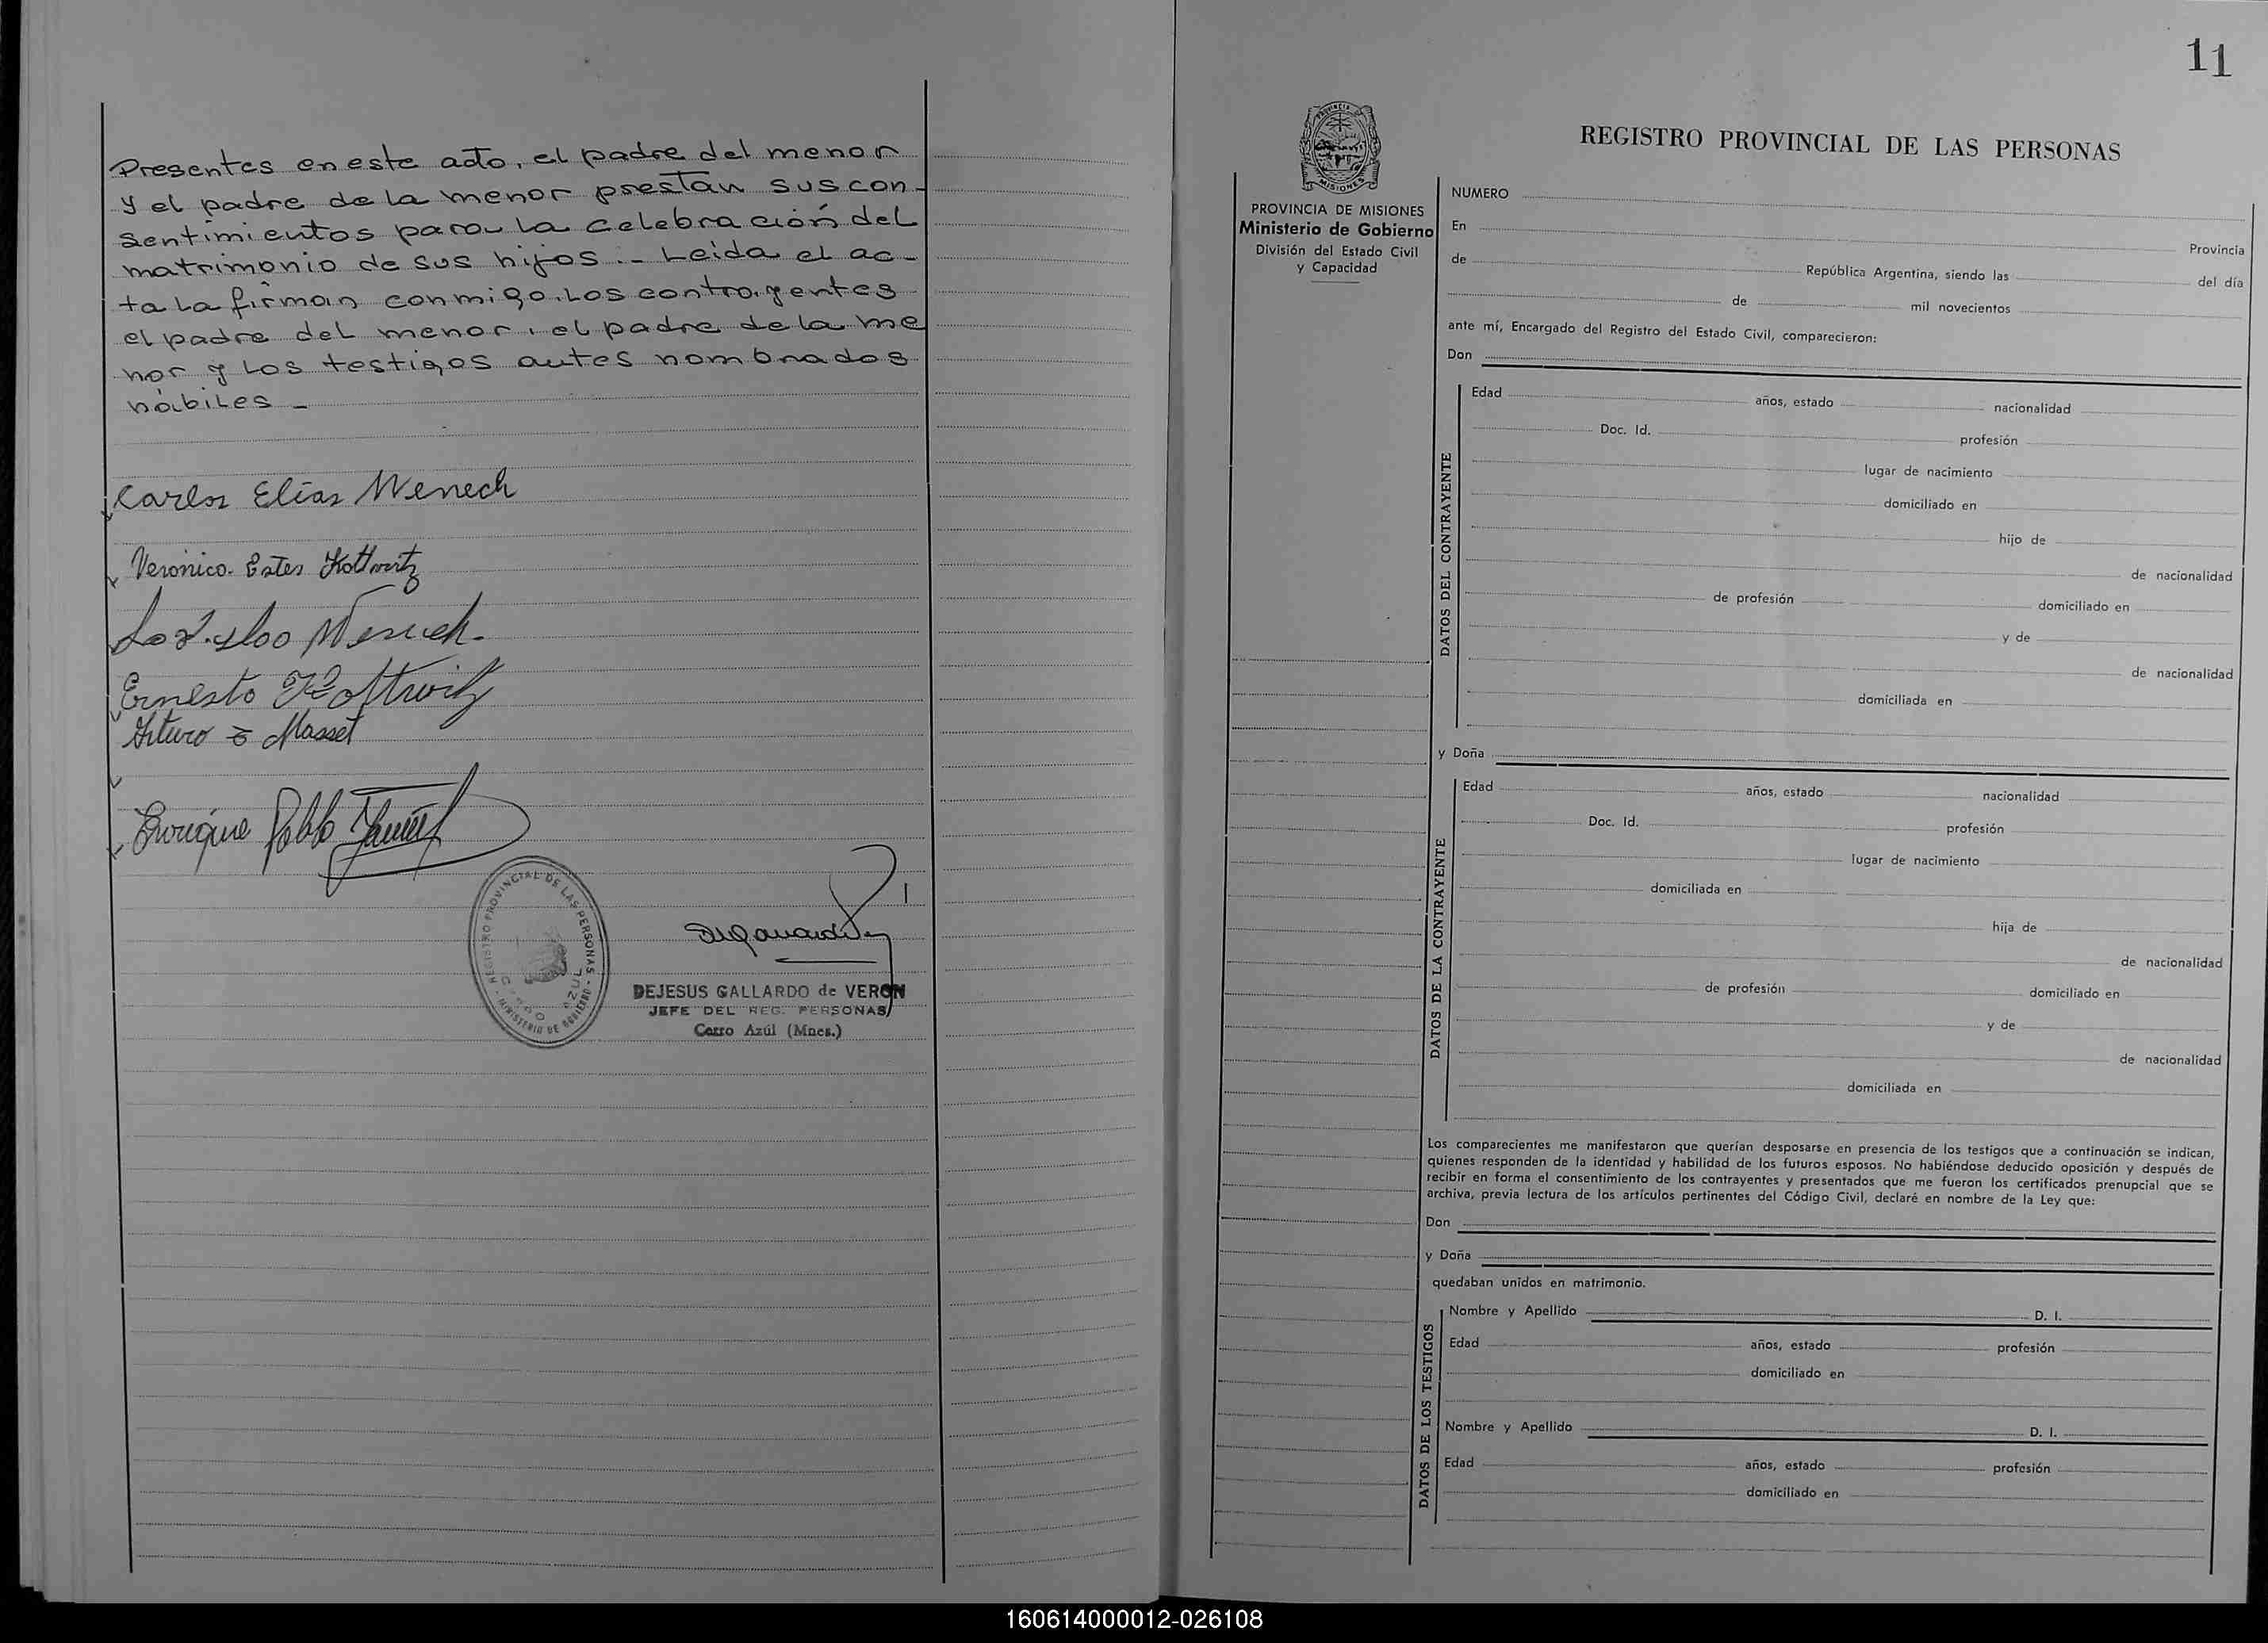 Presentes en este acto, el padre del menor
y el padre de la menor prestan sus con-
sentimientos para la celebración del
matrimonio de sus hijos.- Leída el ac-
ta la firman conmigo, los contrayentes
el padre del menor, el padre de la me
nor y los testigos antes nombrados
hábiles -
Carlos Elías Wenech
Verónica Ester Kottwitz
Wenech
Ernesto Kottwitz
Arturo E Masset
Enrique Pablo
REGISTRO PROVINCIAL DE LAS PERSONAS
- MINISTERIO DE GOBIERNO -
CERRO AZUL
DEJESUS GALLARDO de VERON
JEFE DEL REG. PERSONAS
Cerro Azúl (Mnes.)
11
PROVINCIA
MISIONES
PROVINCIA DE MISIONES
Ministerio de Gobierno
División del Estado Civil
y Capacidad
REGISTRO PROVINCIAL DE LAS PERSONAS
NUMERO
En
Provincia
de República Argentina, siendo las del día
de mil novecientos
ante mí, Encargado del Registro del Estado Civil, comparecieron:
Don
DATOS DEL CONTRAYENTE
Edad años, estado nacionalidad
Doc. Id. profesión
lugar de nacimiento
domiciliado en
hijo de
de nacionalidad
de profesión domiciliado en
y de
de nacionalidad
domiciliada en
y Doña
DATOS DE LA CONTRAYENTE
Edad años, estado nacionalidad
Doc. Id. profesión
lugar de nacimiento
domiciliada en
hija de
de nacionalidad
de profesión domiciliado en
y de
de nacionalidad
domiciliada en
Los comparecientes me manifestaron que querían desposarse en presencia de los testigos que a continuación se indican,
quienes responden de la identidad y habilidad de los futuros esposos. No habiéndose deducido oposición y después de
recibir en forma el consentimiento de los contrayentes y presentados que me fueron los certificados prenupcial que se
archiva, previa lectura de los artículos pertinentes del Código Civil, declaré en nombre de la Ley que:
Don
y Doña
quedaban unidos en matrimonio.
DATOS DE LOS TESTIGOS
Nombre y Apellido D. I.
Edad años, estado profesión
domiciliado en
Nombre y Apellido D. I.
Edad años, estado profesión
domiciliado en
160614000012-026108